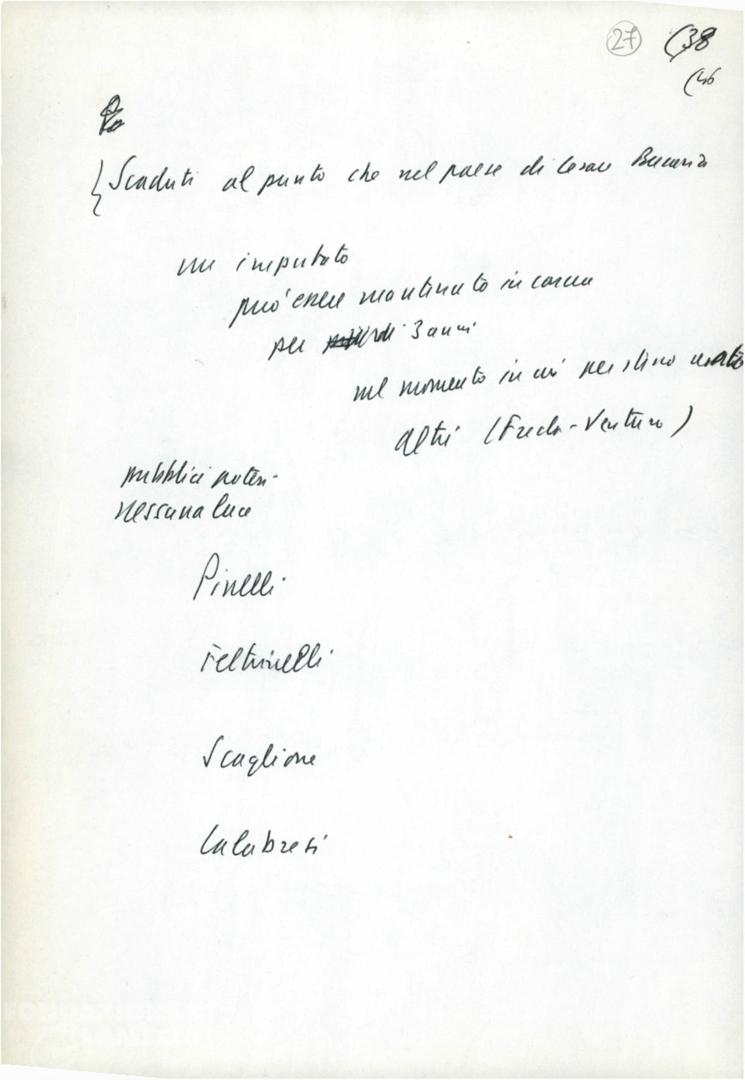 27 (38
(46
Scaduti al punto che nel paese di Cesare Beccaria
un imputato
può essere mantenuto in carcere
per 3 anni
nel momento in cui
altri (Freda-Ventura)
pubblici poteri
nessuna luce
Pinelli
Feltrinelli
Scaglione
Calabresi